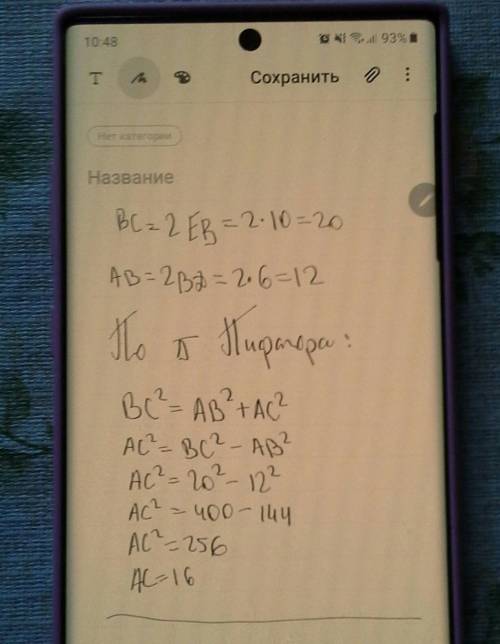 10:48 93%
T Сохранить
Нет категории
Название
BC = 2 EB = 2·10 = 20
AB = 2BД = 2·6 = 12
По т Пифагора:
BC² = AB² + AC²
AC² = BC² - AB²
AC² = 20² - 12²
AC² = 400 - 144
AC² = 256
AC = 16